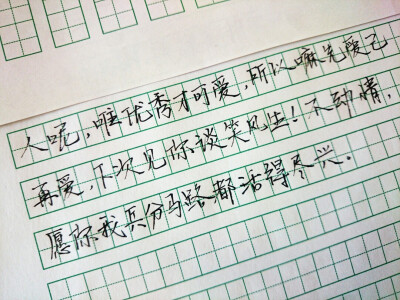 人呢，唯优秀才可爱，所以嘛先爱己
再爱，下次见你谈笑风生！不动情，
愿你我兵分马路都活得尽兴．